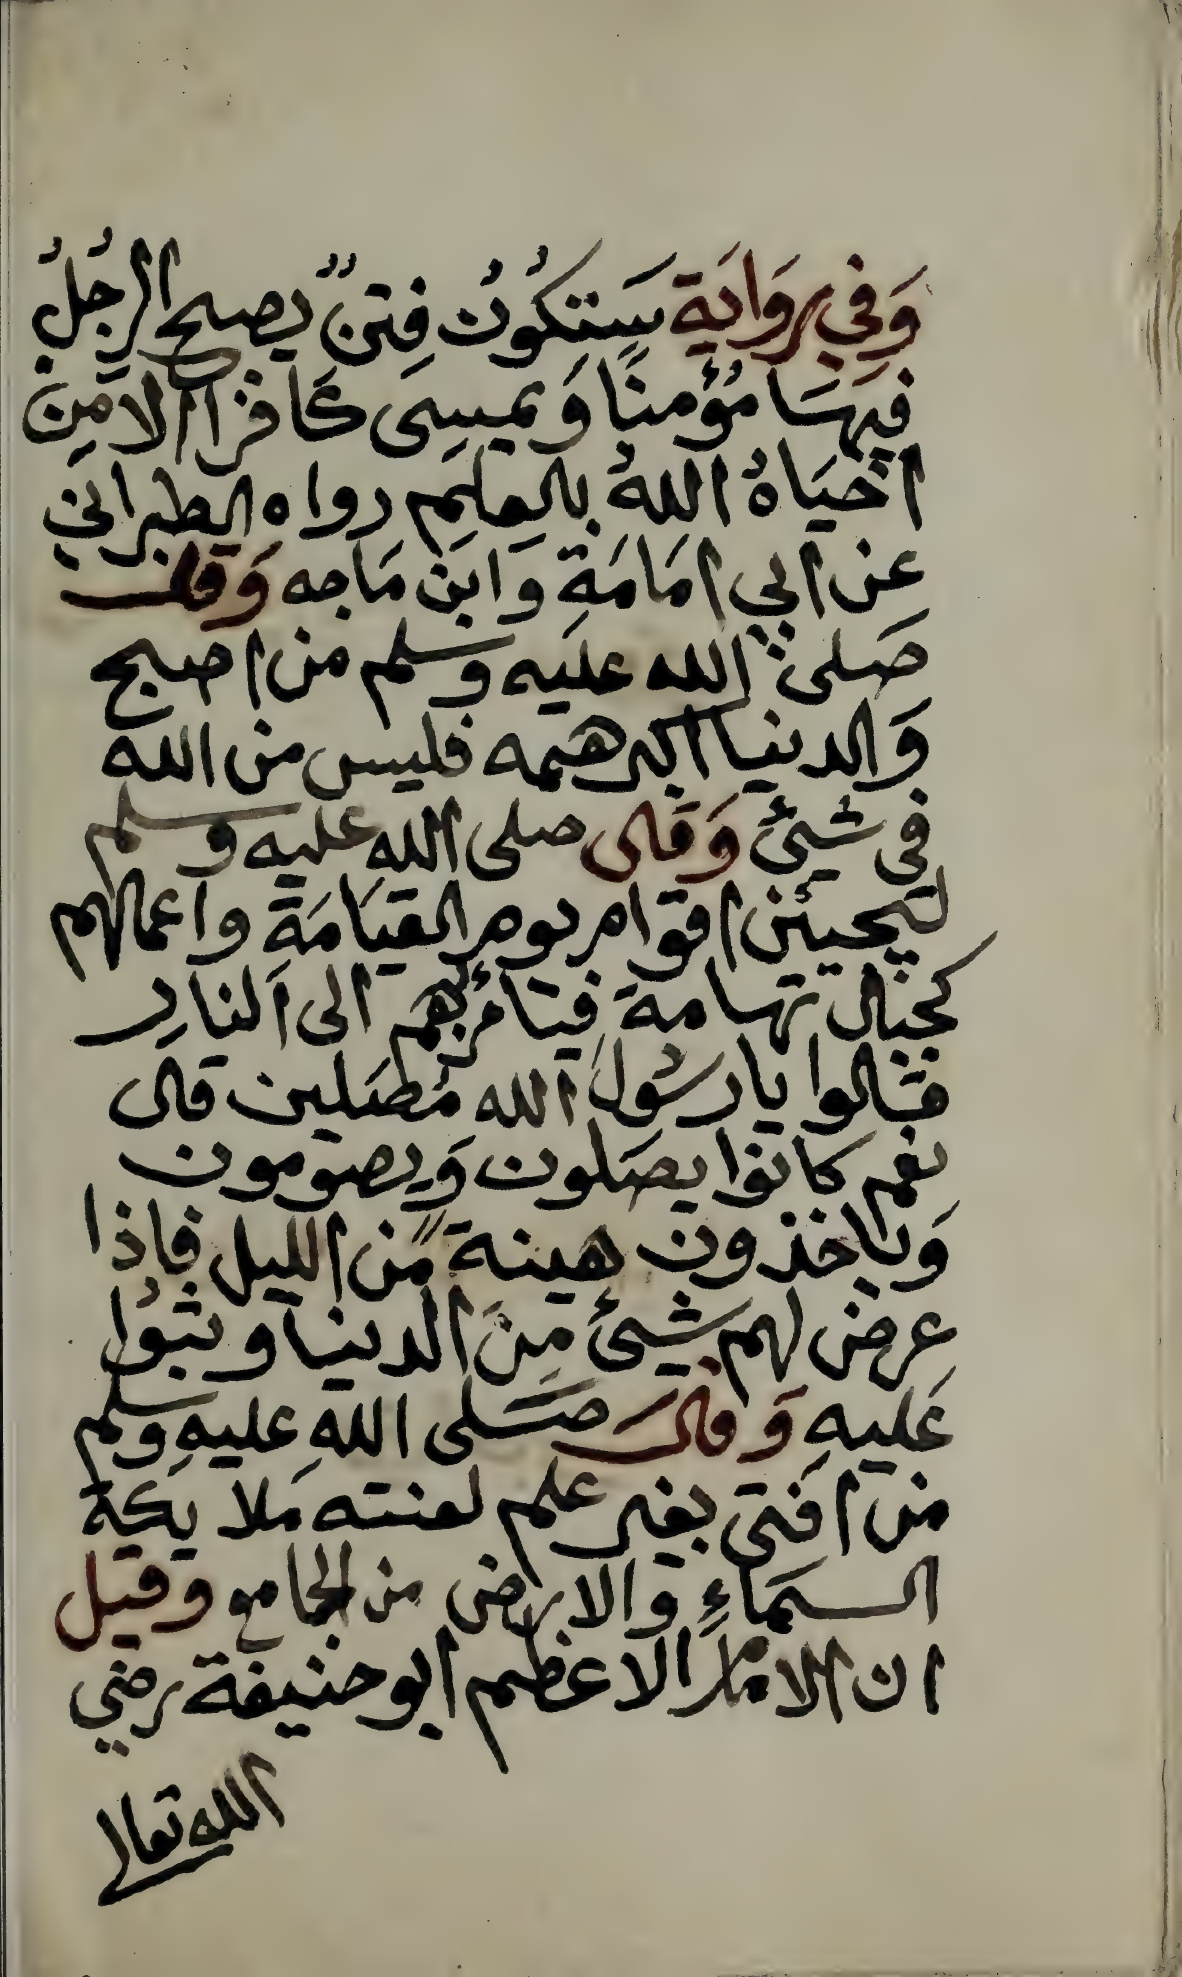 وَفِي رِوَايَة سَتَكُوُنُ فِتَنٌ يصبح الرجُلُ
فيهَا مُؤمنًا وَيمسِى كَافرًا الا مَنْ
احْيَاهُ اللهُ بالعِلمِ رواه الطبراني
عن ابي امَامَةِ وَابن مَاجه وَقال
صَلى الله عليه وسلم من اصبح
وَالدنيا اكبر همه فليس من الله
في شيئ وَقَال صلى الله عليه وسلم
لتجيئن اقوام يوم القيَامَةِ واعمالهم
كجبال تهامة فيتأمر بهم الى النار
فقالوا يا رسُولَ الله مُصَلين قال
نعم كانوا يصَلون وَيصومون
وَياخذون هينة من الليل فاذا
عرض لهم شيئ مِنَ الدنيا وثبُوا
عَليهِ وَقالَ صَلى اللهِ عليهِ وَسلم
من افتى بغير علم لعنته مَلايكة
السمَاءِ وَالارض من الجامع وقيل
ان الامام الاعظم ابو حنيفة رضي
الله تعالى